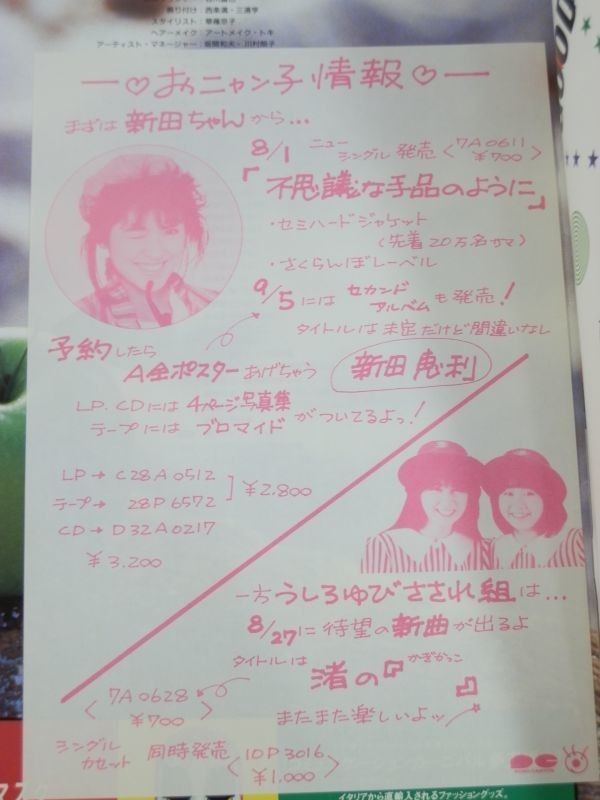 振り付け：西条満・三浦亨
スタイリスト：
ヘアーメイク：アートメイク・トキ
アーティスト・マネージャー：
－♡おニャン子情報♡－
まずは新田ちゃんから…
8/1 ニューシングル発売〈7A0611 ¥700〉
『不思議な手品のように』
・セミハードジャケット
（先着20万名サマ）
・さくらんぼレーベル
9/5には セカンドアルバムも発売！
タイトルは未定だけど間違いなし
予約したら
A全ポスターあげちゃう
新田恵利
LP.CDには4ページ写真集
テープにはブロマイド
がついてるよっ！
LP→C28A0512
テープ→28P6572
¥2.800
CD→D32A0217
¥3.200
一方うしろゆびさされ組は…
8/27に待望の新曲が出るよ
タイトルは 渚の『 かぎかっこ 』
〈7A0628 ¥700〉
またまた楽しいよッ
シングルカセット 同時発売〈10P3016 ¥1,000〉
PC
イタリアから直輸入されるファッショングッズ。